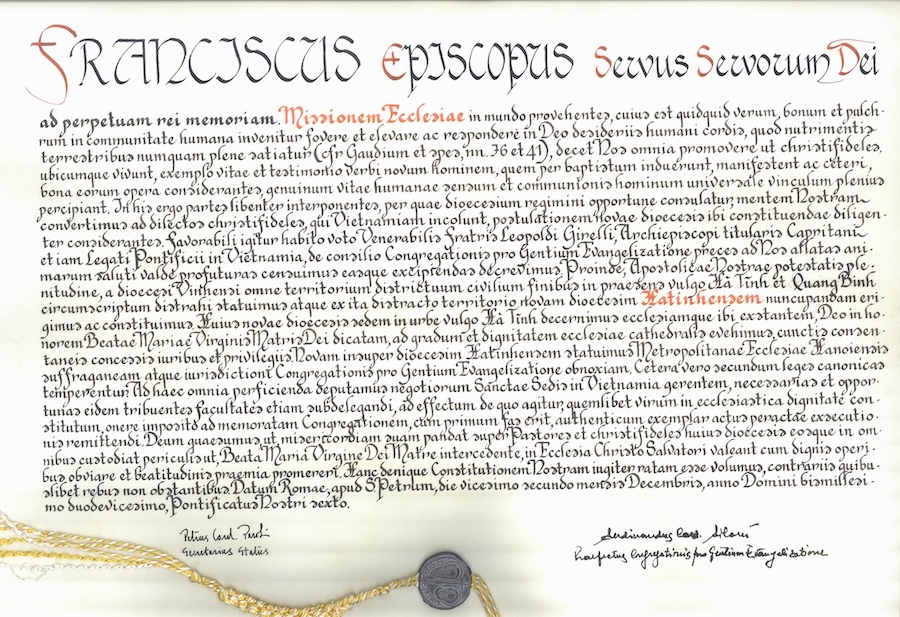 Franciscus Episcopus Servus Servorum Dei
ad perpetuam rei memoriam. Missionem Ecclesiae in mundo provehentes, cuius est quidquid verum, bonum et pulch-
rum in communitate humana invenitur fovere et elevare ac respondere in Deo desideriis humani cordis, quod nutrimentis
terrestribus numquam plene satiatur (cfr Gaudium et spes, nn. 76 et 41), decet Nos omnia promovere ut christifideles,
ubicumque vivunt, exemplo vitae et testimonio verbi novum hominem, quem per baptistum induerunt, manifestent ac ceteri,
bona eorum opera considerantes, genuinum vitae humanae sensum et communionis hominum universale vinculum plenius
percipiant. In his ergo partes libenter interponentes, per quae dioecesium regimini opportune consulatur, mentem Nostram
convertimus ad dilectos christifideles, qui Vietnamiam incolunt, postulationem novae dioecesis ibi constituendae diligen-
ter considerantes. Favorabili igitur habito voto Venerabilis Fratris Leopoldi Girelli, Archiepiscopi titularis Capritani
et iam Legati Pontificii in Vietnamia, de consilio Congregationis pro Gentium Evangelizatione preces ad Nos allatas ani-
marum saluti valde profuturas censuimus easque excipiendas decrevimus. Proinde, Apostolicae Nostrae potestatis ple-
nitudine, a dioecesi Vinhensi omne territorium districtuum civilium finibus in praesens vulgo Hà Tinh et Quang Binh
circumscriptum distrahi statuimus atque ex ita distracto territorio novam dioecesim Hatinhensem nuncupandam eri-
gimus ac constituimus. Huius novae dioecesis sedem in urbe vulgo Hà Tinh decernimus ecclesiamque ibi exstantem, Deo in ho-
norem Beatae Mariae Virginis Matris Dei dicatam, ad gradum et dignitatem ecclesiae cathedralis evehimus, cunctis consen-
taneis concessis iuribus et privilegiis. Novam insuper dioecesim Hatinhensem statuimus Metropolitanae Ecclesiae Hanoiensis
suffraganeam atque iurisdictioni Congregationis pro Gentium Evangelizatione obnoxiam. Cetera vero secundum leges canonicas
temperentur. Ad haec omnia perficienda deputamus negotiorum Sanctae Sedis in Vietnamia gerentem, necessarias et oppor-
tunas eidem tribuentes facultates etiam subdelegandi, ad effectum de quo agitur, quemlibet virum in ecclesiastica dignitate con-
stitutum, onere imposito ad memoratam Congregationem, cum primum fas erit, authenticum exemplar actus peractae exsecutio-
nis remittendi. Deum quaesumus, ut misericordiam suam pandat super Pastores et christifideles huius dioecesis eosque in om-
nibus custodiat periculis ut, Beata Maria Virgine Dei Matre intercedente, in Ecclesia Christo Salvatori valeant cum dignis operi-
bus obviare et beatitudinis praemia promereri. Hanc denique Constitutionem Nostram iugiter ratam esse volumus, contrariis quibu-
slibet rebus non obstantibus. Datum Romae, apud S. Petrum, die vicesimo secundo mensis Decembris, anno Domini bismillesi-
mo duodevicesimo, Pontificatus Nostri sexto.
Petrus Card. Parolin
Secretarius Status
Ferdinandus Card. Filoni
Praefectus Congregationis pro Gentium Evangelizatione